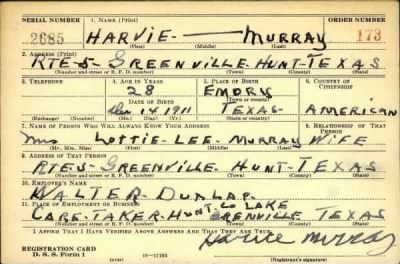 SERIAL NUMBER 1. NAME (Print) ORDER NUMBER
2685 HARVIE — MURRAY 173
(First) (Middle) (Last)
2. ADDRESS (Print)
RTE-5 GREENVILLE-HUNT-TEXAS
(Number and street or R. F. D. number) (Town) (County) (State)
3. TELEPHONE 4. AGE IN YEARS 5. PLACE OF BIRTH 6. COUNTRY OF CITIZENSHIP
28 EMORY
DATE OF BIRTH (Town or county)
14 1911 TEXAS- AMERICAN
(Exchange) (Number) (Mo.) (Day) (Yr.) (State or country)
7. NAME OF PERSON WHO WILL ALWAYS KNOW YOUR ADDRESS 8. RELATIONSHIP OF THAT PERSON
Mrs LOTTIE-LEE-MURRAY WIFE
(Mr., Mrs., Miss) (First) (Middle) (Last)
9. ADDRESS OF THAT PERSON
RTE-5-GREENVILLE HUNT-TEXAS
(Number and street or R. F. D. number) (Town) (County) (State)
10. EMPLOYER'S NAME
WALTER-DUNLAP
11. PLACE OF EMPLOYMENT OR BUSINESS
CARE-TAKER-HUNT. CO LAKE GRENVILLE TEXAS
(Number and street or R. F. D. number) (Town) (County) (State)
I AFFIRM THAT I HAVE VERIFIED ABOVE ANSWERS AND THAT THEY ARE TRUE.
REGISTRATION CARD
D. S. S. Form 1 (over) 16—17105 Harvie Murray
(Registrant's signature)